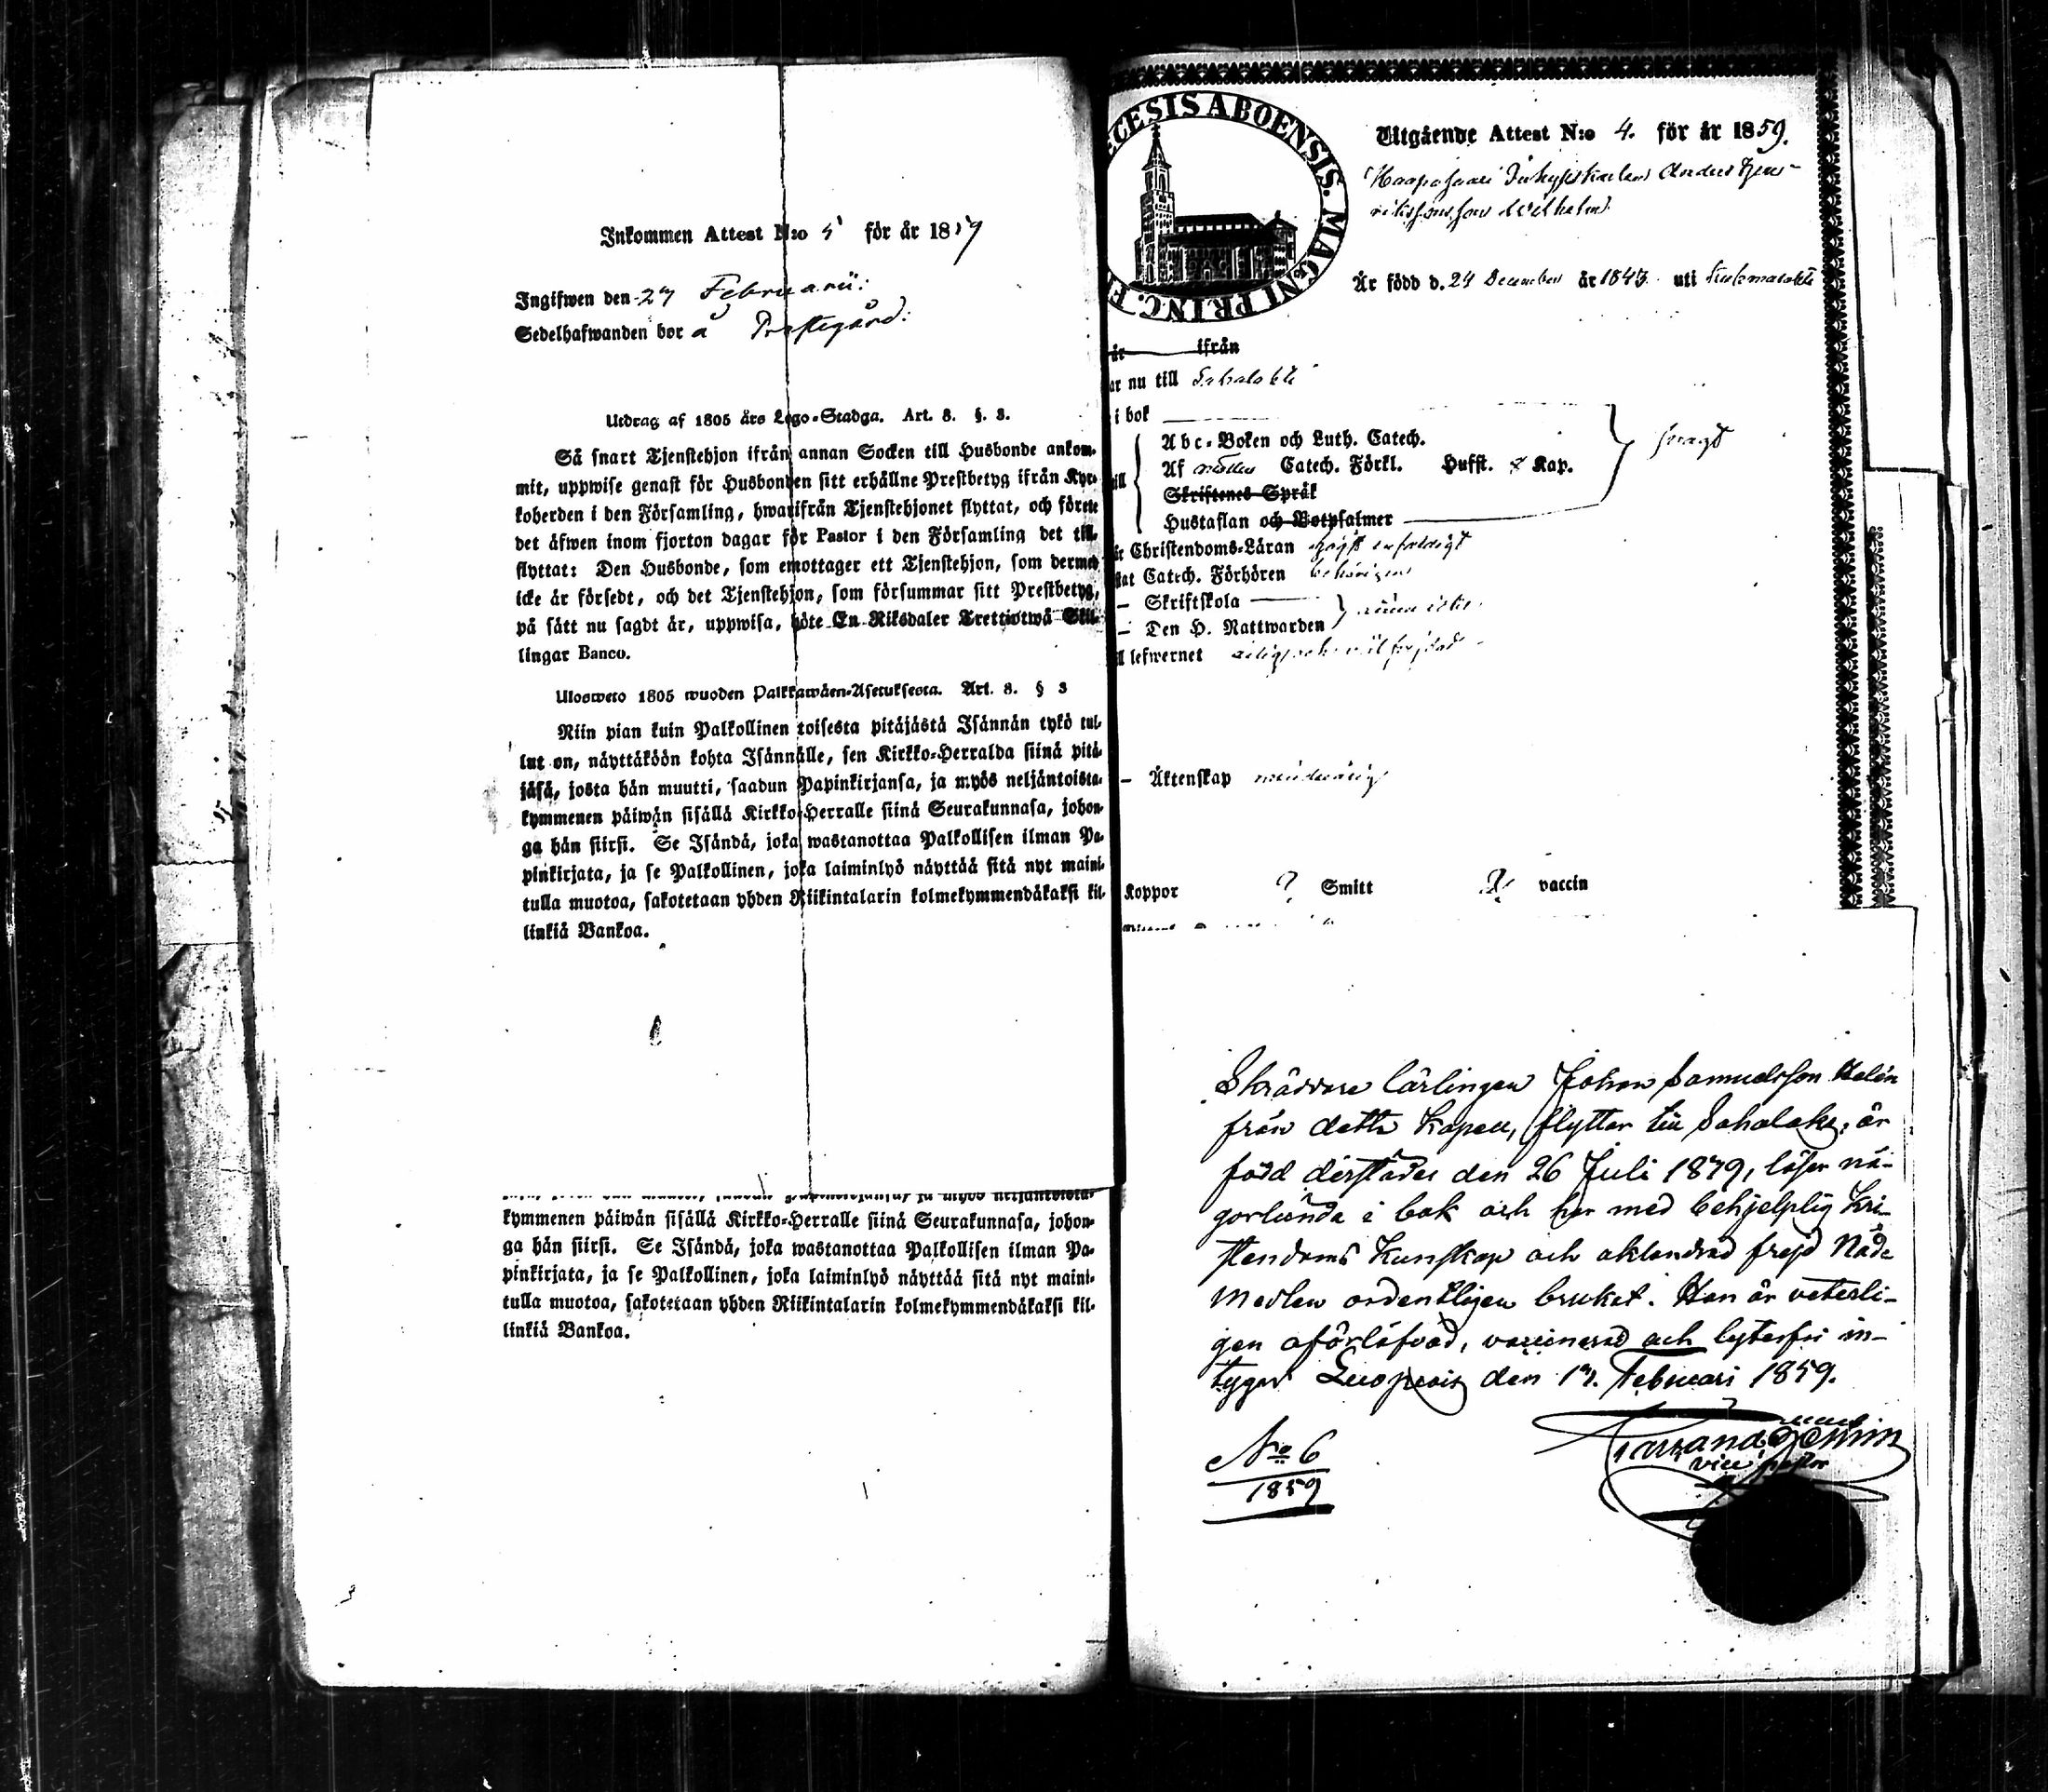 Inkommen Attest N:o 5 för år 1859
Ingifwen den 27 Februarii:
Sedelhafwanden bor å Prestegård:
Utdrag af 1805 års Lego-Stadga. Art. 8. §. 3.
Så snart Tjenstehjon ifrån annan Socken till Husbonde ankom-
mit, uppwise genast för Husbonden sitt erhållne Prestbetyg ifrån Kyr-
koherden i den Församling, hwarifrån Tjenstehjonet flyttat, och förete
det äfwen inom fjorton dagar för Pastor i den Församling det till-
flyttat: Den Husbonde, som emottager ett Tjenstehjon, som dermed
icke är försedt, och det Tjenstehjon, som försummar sitt Prestbetyg,
på sätt nu sagdt är, uppwisa, böte En Riksdaler Trettiotwå Skil-
lingar Banco.
Ulosweto 1805 wuoden Palkkawäen-Asetuksesta. Art. 8. § 3
Niin pian kuin Palkollinen toisesta pitäjästä Isännän tykö tul-
lut on, näyttäköön kohta Isännälle, sen Kirkko-Herralda siinä pitä-
jäsä, josta hän muutti, saadun Papinkirjansa, ja myös neljäntoista-
kymmenen päiwän sisällä Kirkko-Herralle siinä Seurakunnasa, johon-
ga hän siirsi. Se Isändä, joka wastanottaa Palkollisen ilman Pa-
pinkirjata, ja se Palkollinen, joka laiminlyö näyttää sitä nyt maini-
tulla muotoa, sakotetaan yhden Riikintalarin kolmekymmendäkaksi kil-
linkiä Bankoa.
kymmenen päiwän sisällä Kirkko-Herralle siinä Seurakunnasa, johon-
ga hän siirsi. Se Isändä, joka wastanottaa Palkollisen ilman Pa-
pinkirjata, ja se Palkollinen, joka laiminlyö näyttää sitä nyt maini-
tulla muotoa, sakotetaan yhden Riikintalarin kolmekymmendäkaksi kil-
linkiä Bankoa.
ECESIS ABOENSIS. MAGNI PRINC. F
Utgående Attest N:o 4. för år 1859.
Anders Hen-
rikssons son Wilhelm
Är född d. 24 December år 1843 uti Kuhmalahti
år ifrån
ar nu till Sahalahti
i bok
Abc-Boken och Luth. Catech.
Af Catech. Förkl. Hufst. Kap.
Skriftenes Språk
Hustaflan och Botpsalmer
svagt
Christendoms-Läran
Catech. Förhören behörigen
– Skriftskola
– Den H. Nattwarden
ll lefwernet
– Äktenskap minderårig
Koppor ? Smitt ? vaccin
Skräddare lärlingen Johan Samuelsson Helén
från detta Kapell, flyttar till Sahalaks, är
född derstädes den 26 Juli 1839, läser nå-
gorlunda i bok och har med behjelplig kri-
stendoms kunskap och oklandrad frejd Nåde
medlen ordentligen brukat. Han är veterli-
gen oförlofvad, vaccinerad och lytesfri in-
tygar Luopiois den 17. Februari 1859.
vice pastor
No 6
1859